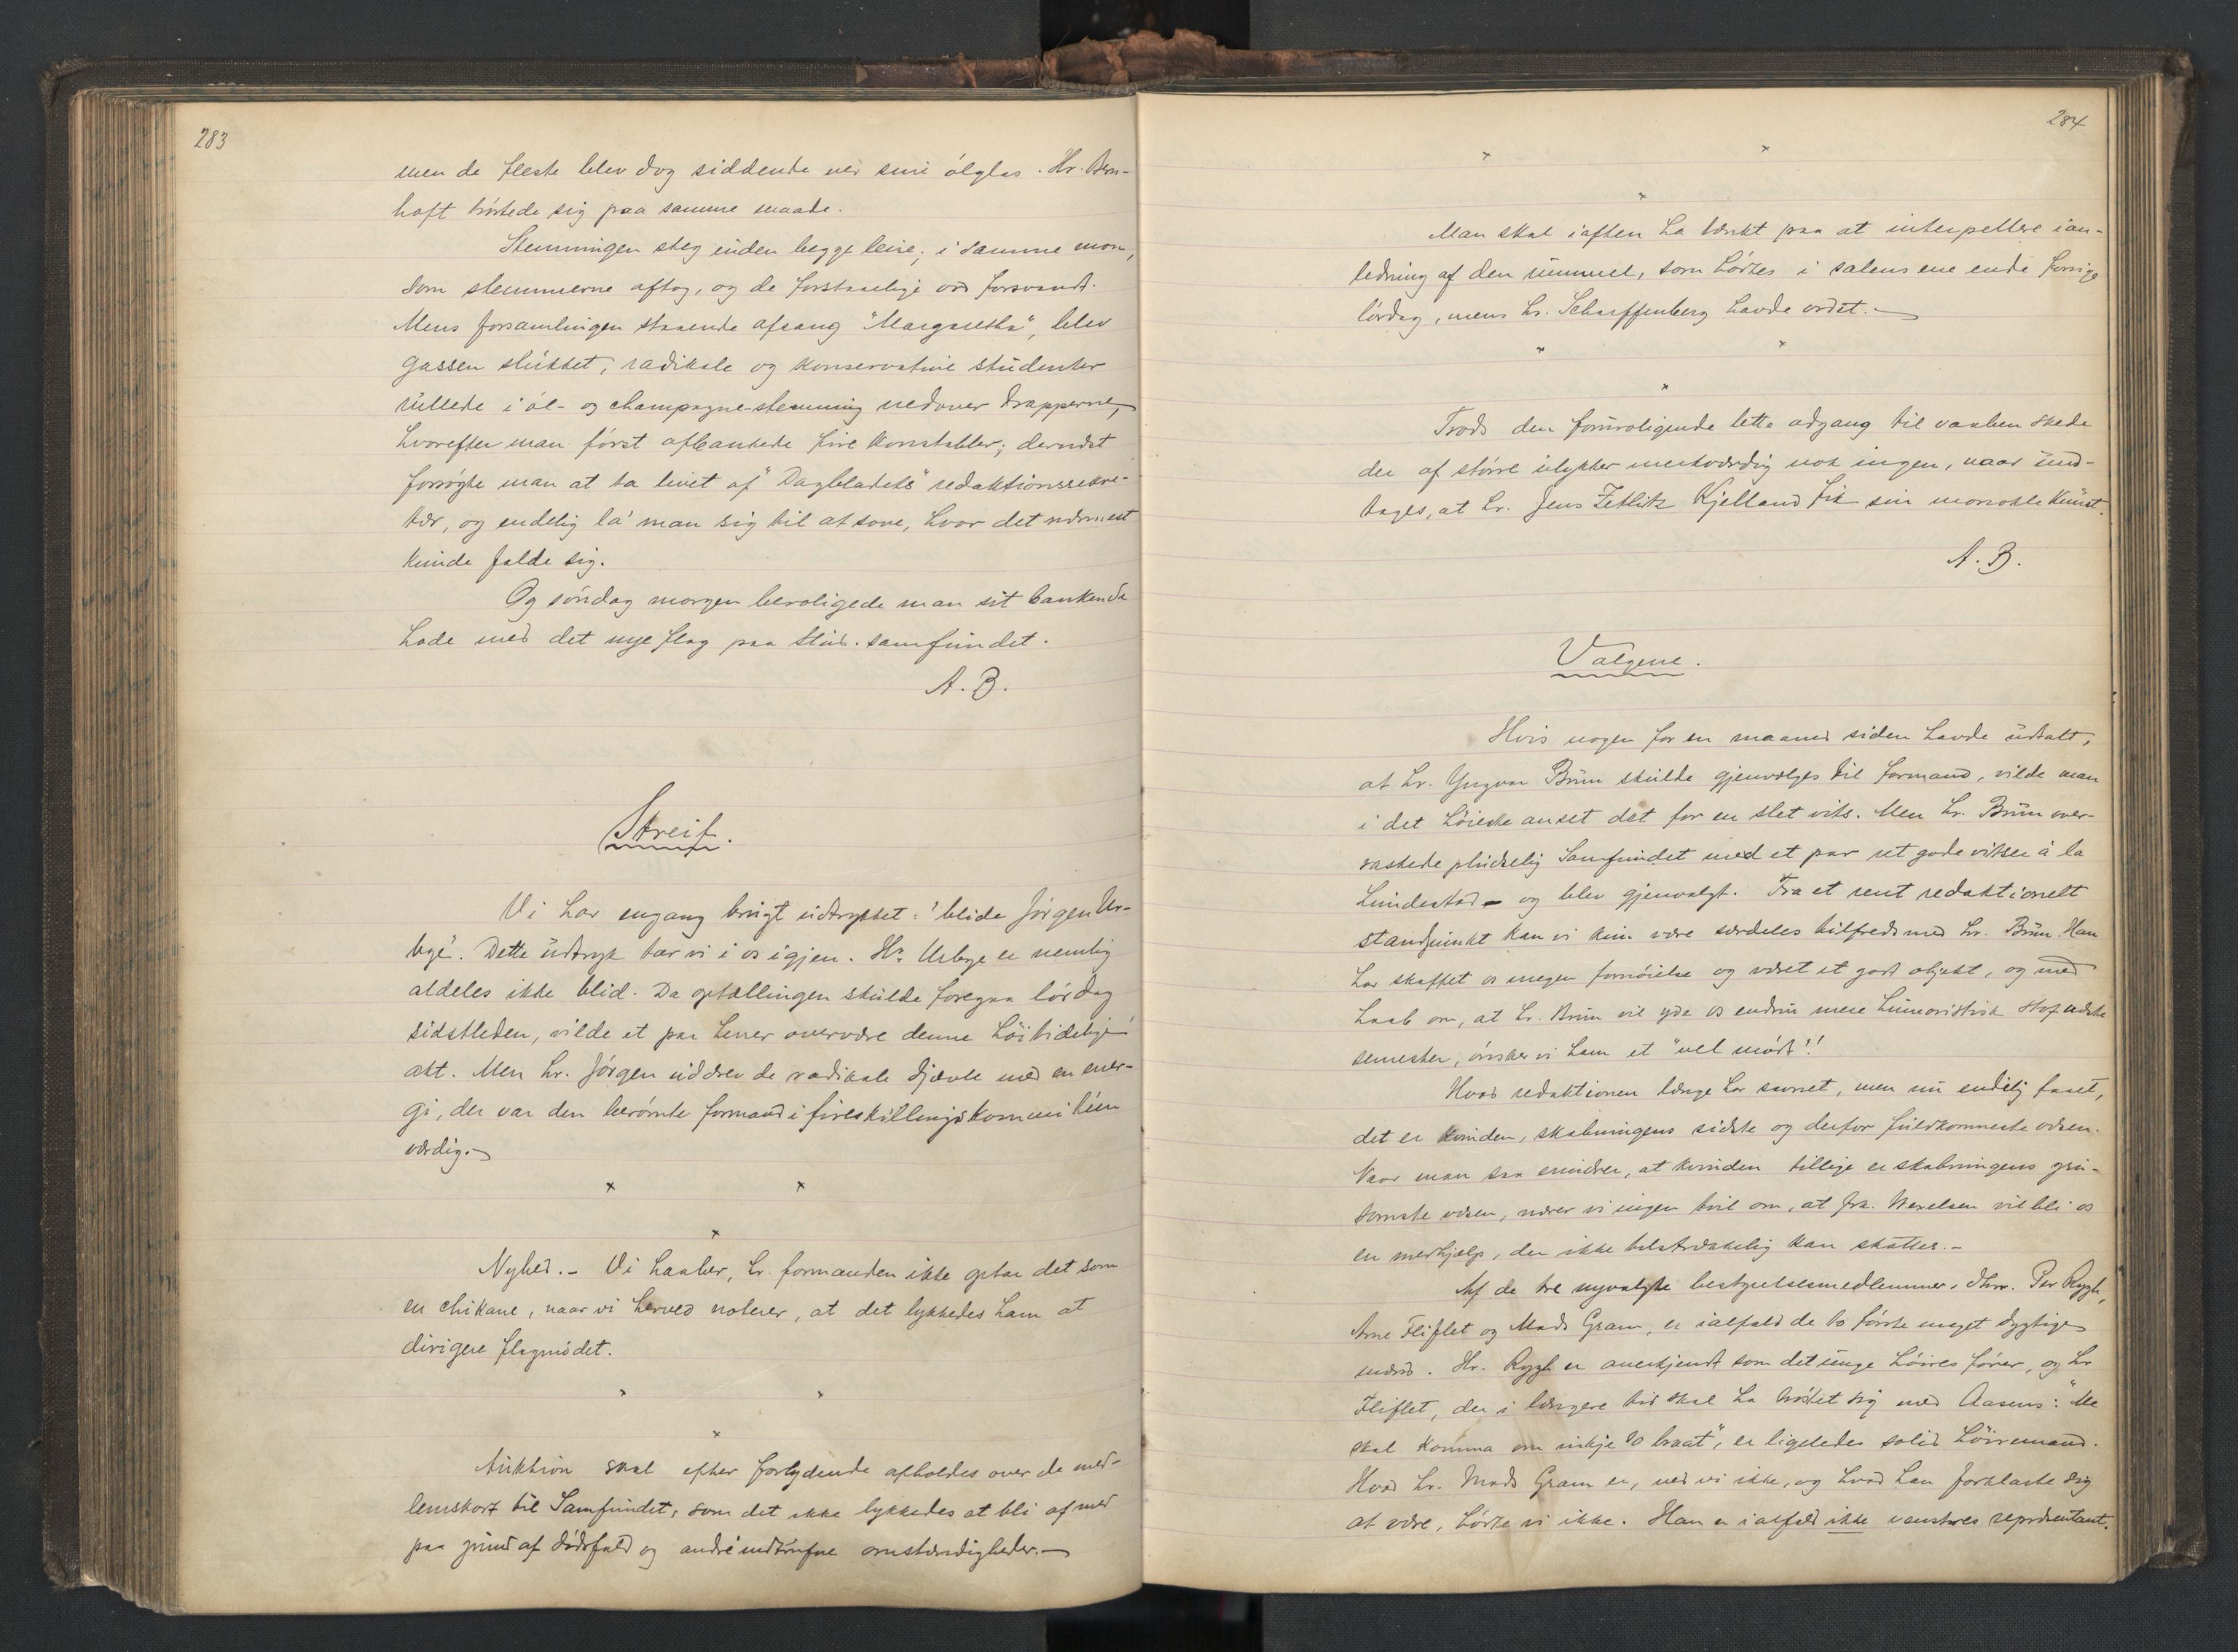 283
men de fleste blev dog siddende ved sine ölglas. Hr. Bern-
hoft tröstede sig paa samme maade.
Stemningen steg inden begge leire; i samme mon,
som stemmerne aftog, og de forstaaelige ord forsvandt.
Mens forsamlingen staaende afsang "Margaretha", blev
gassen slukket; radikale og konservative studenter
rullede i öl- og champagne-stemning nedover trapperne,
hvorefter man först afbankede fire konstabler; dernæst
forsögte man at ta livet af "Dagbladets" redaktionssekre-
tær, og endelig la' man sig til at sove, hvor det nærmest
kunde falde sig.
Og söndag morgen beroligede man sit bankende
hode med det nye flag paa stud. samfundet.
A. B.
Streif.
Vi har engang brugt udtrykket: "blide Jörgen Ur-
bye". Dette udtryk tar vi i os igjen. Hr. Urbye er nemlig
aldeles ikke blid. Da optællingen skulde foregaa lördag
sidstleden, vilde et par herrer overvære denne höitidelige
akt. Men hr. Jörgen uddrev de radikale djævle med en ener-
gi, der var den berömte formand i fireskillingskommitéen
værdig.
Nyhed. – Vi haaber, hr. formanden ikke optar det som
en chikane, naar vi herved noterer, at det lykkedes ham at
dirigere flagmödet.
Auktion skal efter forlydende afholdes over de med-
lemskort til Samfundet, som det ikke lykkedes at bli af med
paa grund af dödsfald og andre indtrufne omstændigheder.
284
Man skal iaften ha tænkt paa at interpellere ian-
ledning af den rummel, som hörtes i salens ene ende forrige
lördag, mens hr. Scharffenberg havde ordet.
Trods den foruroligende lette adgang til vaaben skede
der af större ulykker merkværdig nok ingen, naar und-
tages, at hr. Jens Zetlitz Kjelland fik sin monokle knust.
A. B.
Valgene.
Hvis nogen for en maaned siden havde udtalt,
at hr. Yngvar Brun skulde gjenvælges til formand, vilde man
i det höieste anset det for en slet vits. Men hr. Brun over-
raskede pludselig Samfundet med et par ret gode vitser à la
Lundestad – og blev gjenvalgt. Fra et rent redaktionelt
standpunkt kan vi kun være særdeles tilfreds med hr. Brun. Han
har skaffet os megen fornöielse og været et godt objekt, og med
haab om, at hr. Brun vil yde os endnu mere humoristisk stof næste
semester, önsker vi ham et "vel mödt"!
Hvad redaktionen længe har savnet, men nu endelig faaet,
det er kvinden, skabningens sidste og derfor fuldkomneste væsen.
Naar man saa erindrer, at kvinden tillige er skabningens gru-
somste væsen, nærer vi ingen tvil om, at frk. Werelsen vil bli os
en medhjælp, der ikke tilstrækkelig kan skattes. –
Af de tre nyvalgte bestyrelsesmedlemmer, dhrr. Per Rygh,
Arne Fliflet og Mads Gram, er ialfald de to förste meget dygtige
mænd. Hr. Rygh er anerkjendt som det unge höires förer, og hr
Fliflet, der i længere tid skal ha tröstet sig med Aasens: "Me
skal koma om inkje so braat", er ligeledes solid höiremand.
Hvad hr. Mads Gram er, ved vi ikke, og hvad han forklarte sig
at være, hörte vi ikke. Han er ialfald ikke venstres repræsentant.